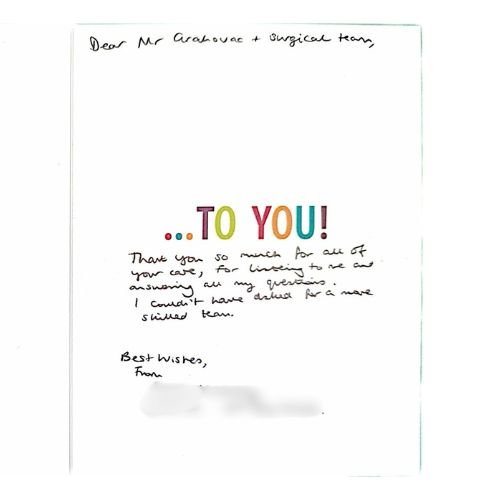 Dear Mr Grahovac + surgical team,
...TO YOU!
Thank you so much for all of
your care, for listening to me and
answering all my questions.
I couldn't have asked for a more
skilled team.
Best Wishes,
From